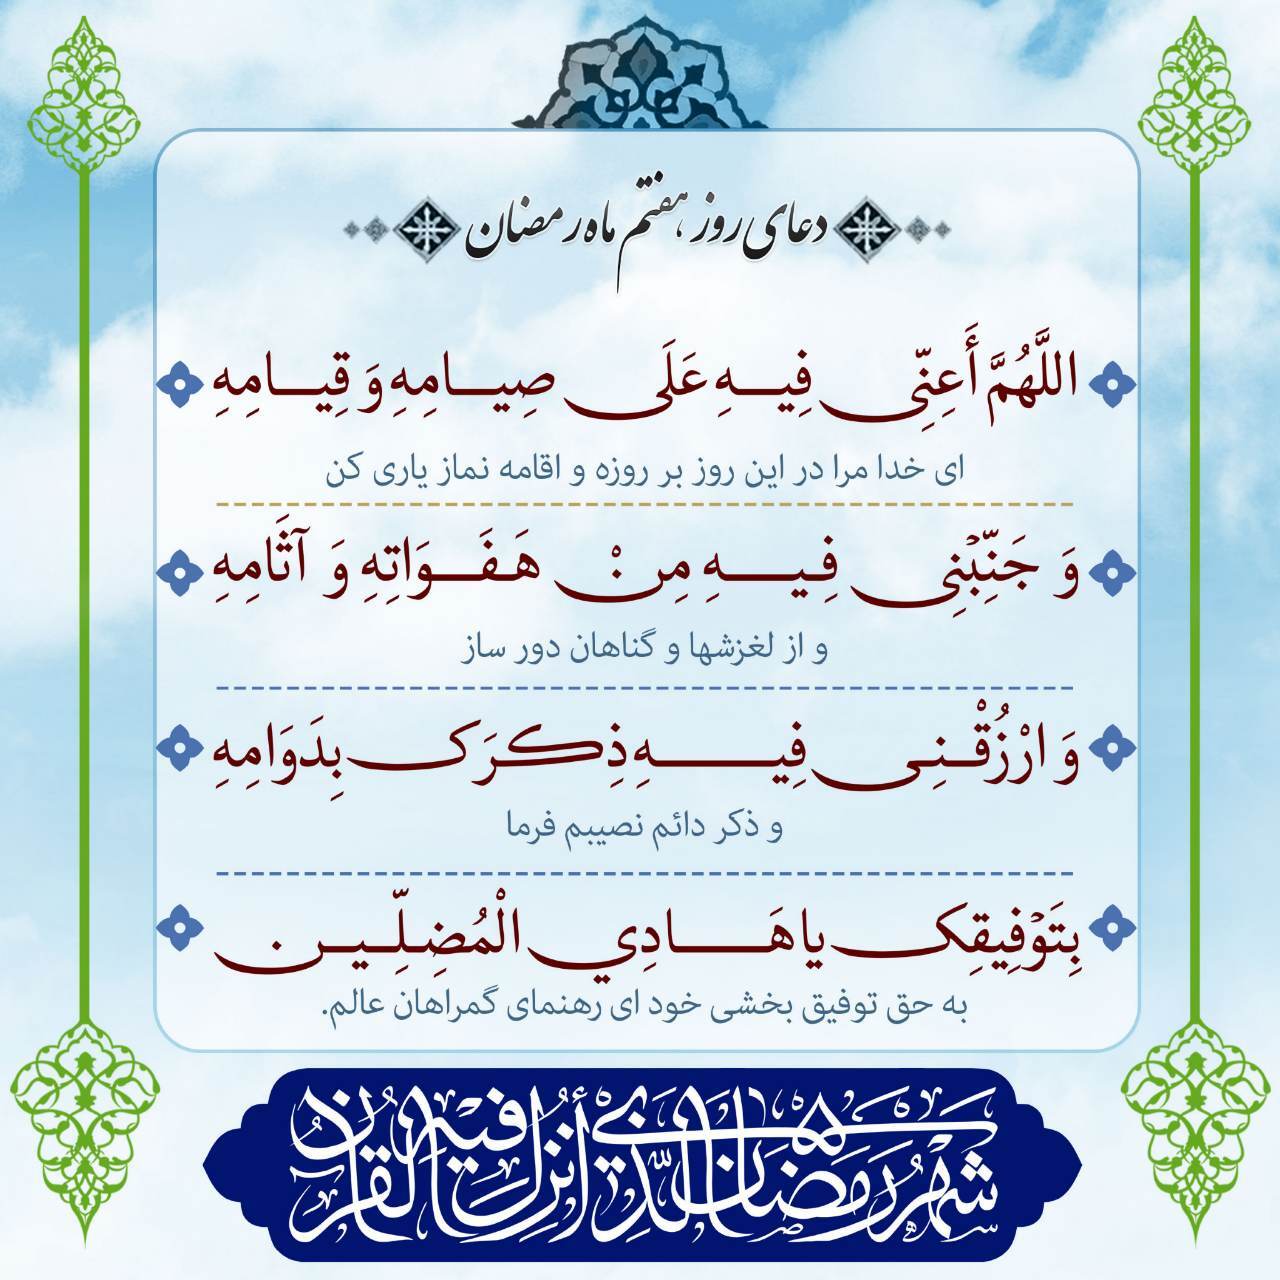 دعای روز هفتم ماه رمضان
اللَّهُمَّ أَعِنِّی فِیهِ عَلَی صِیامِهِ وَ قِیامِهِ
ای خدا مرا در این روز بر روزه و اقامه نماز یاری کن
وَ جَنِّبْنِی فِیهِ مِنْ هَفَوَاتِهِ وَ آثَامِهِ
و از لغزشها و گناهان دور ساز
وَ ارْزُقْنِی فِیهِ ذِکرَک بِدَوَامِهِ
و ذکر دائم نصیبم فرما
بِتَوْفِیقِک یا هَادِي الْمُضِلِّین
به حق توفیق بخشی خود ای رهنمای گمراهان عالم.
شَهْرُ رَمَضَانَ الَّذِي أُنْزِلَ فِيهِ الْقُرْآنُ